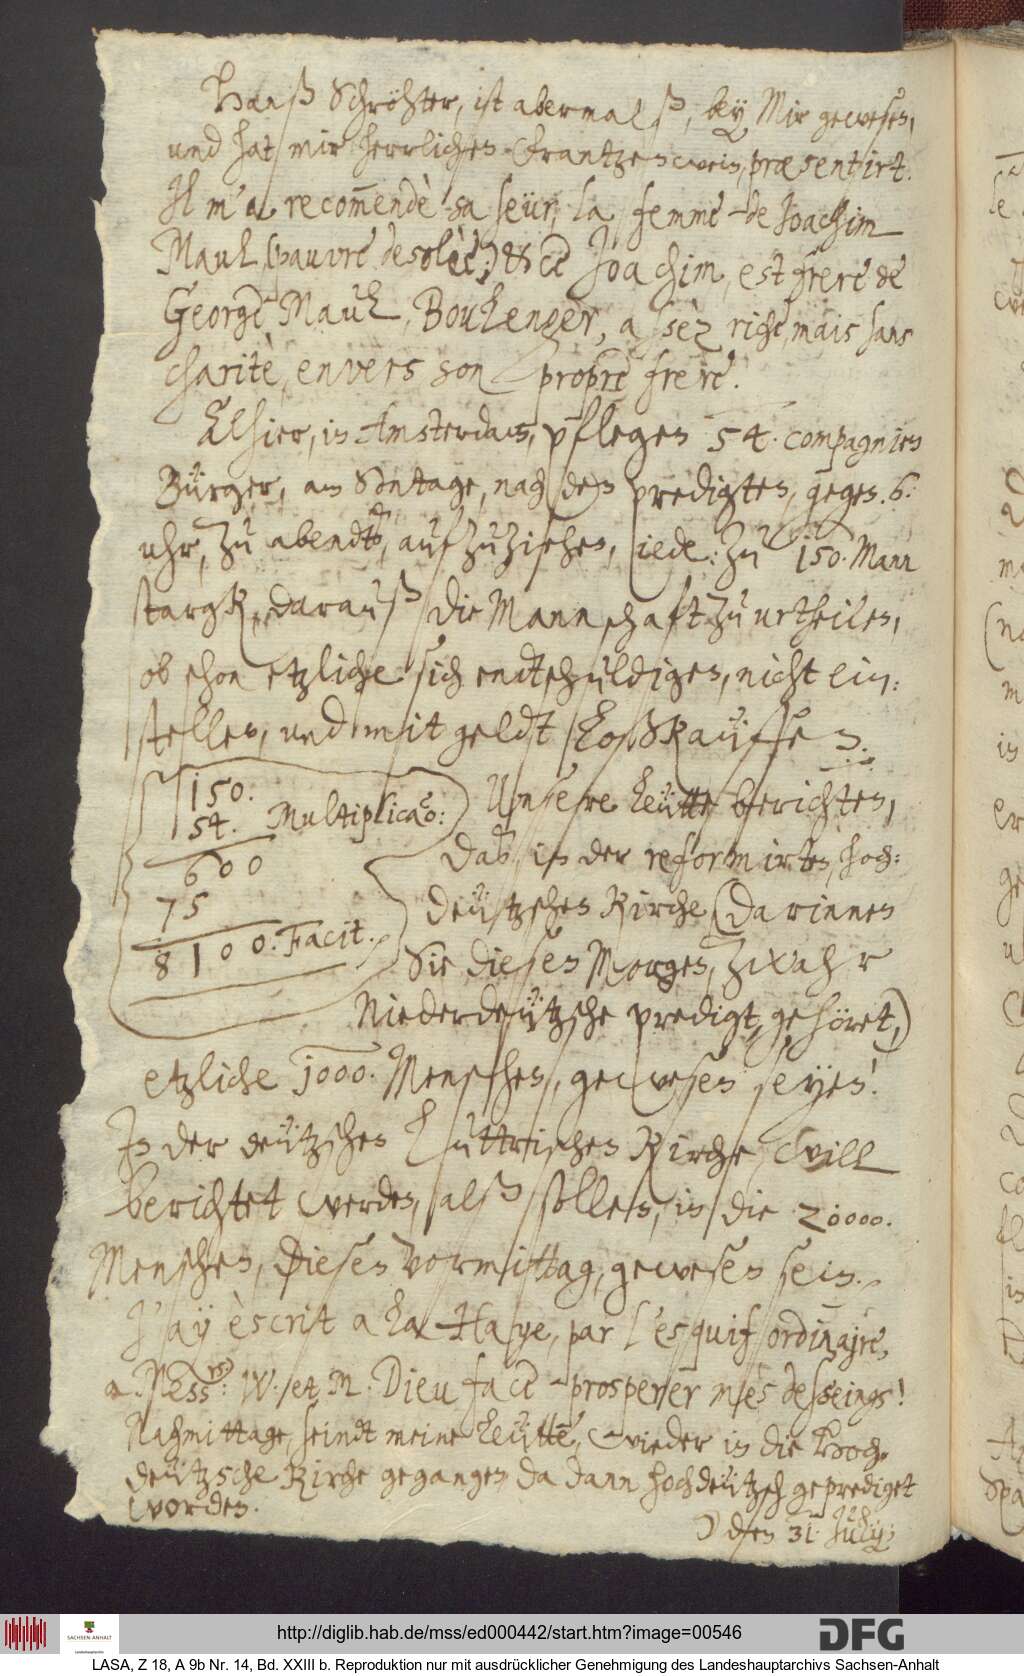 Hanß Schröhter, ist abermalß, beÿ Mir gewesen,
und hat mir herrlichen Frantzenwein, præsentirt.
Il m'a recom̄endè sa seür, la femme de Joachim
Maul, (pauvre desolèe;) et ce Joachim, est frere de
George Maul, Boulenger, assèz riche, mais sans
charitè, envers son propre frere.
Alhier, in Amsterdam, pflegen 54. compagnien
Bürger, am Sontage, nach den predigten, gegen .6.
uhr, zu abendts, aufzuziehen, iede: zu 150. Mann
starck, darauß die Mannschaft zu urtheilen,
ob schon etzliche sich endtschuldigen, nicht ein:
stellen, und mit geldt loßkauffen.
150.
54. Multiplicao:
600
75
8100. Facit.
Unsere leütte berichten,
Das, in der reformirten, hoch:
deützschen Kirche, (darinnen
Sie diesen Morgen, zwahr
Niederdeützsche predigt, gehöret,)
etzliche 1000. Menschen, gewesen seyen!
In der deützschen Luttrischen Kirche, will
berichtet werden, alß sollen, in die 20000.
Menschen, diesen Vormittag, gewesen sein.
J'aÿ èscrit a La Haye, par l'esquif ordinajre,
a Mess<sup>rs</sup>: W. et M. Dieu face prosperer mes desseings!
Nachmittage, seindt meine leütte, wieder in die Hoch
deützsche Kirche gegangen, da dann hochdeützsch geprediget
worden.
☽ den 31. Julÿ:
http://diglib.hab.de/mss/ed000442/start.htm?image=00546
SACHSEN-ANHALT
DFG
LASA, Z 18, A 9b Nr. 14, Bd. XXIII b. Reproduktion nur mit ausdrücklicher Genehmigung des Landeshauptarchivs Sachsen-Anhalt